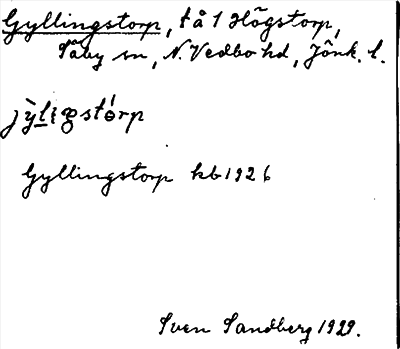 Gyllingstorp, tå 1 Högstorp,
Säby sn, N. Vedbo hd, Jönk. l.
jỳliŋstórp
Gyllingstorp kb 1926
Sven Sandberg 1929.